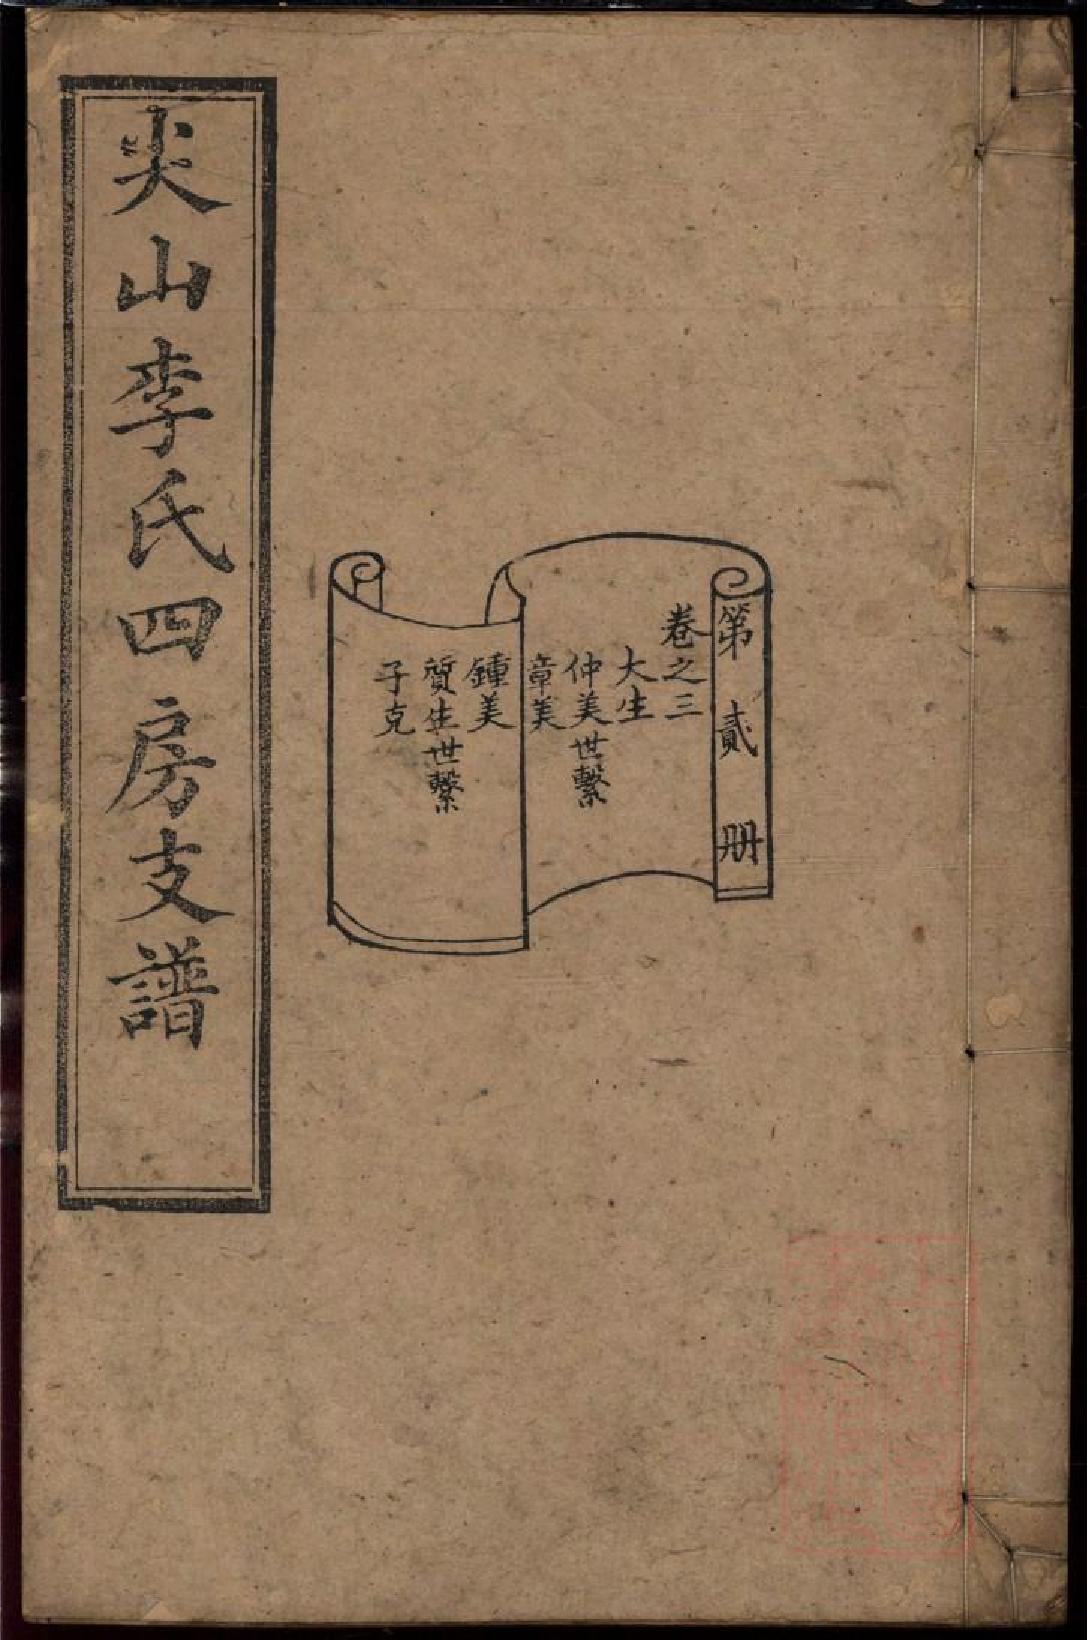 尖山李氏四房支譜
第貳册
卷之三
大生
仲美世繫
章美
鍾美
質生世繫
子克